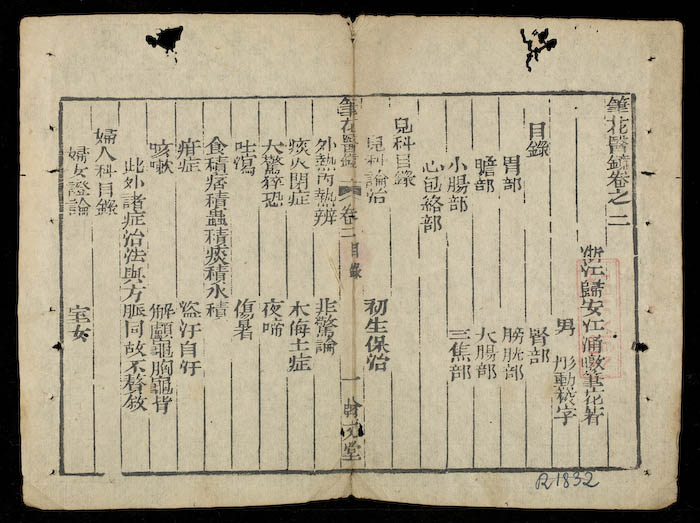 筆花醫鏡卷之二
浙江歸安江涵暾筆花著
男 彤勳 字
目錄 腎部
胃部 膀胱部
膽部 大腸部
小腸部 三焦部
心包絡部
兒科目錄
兒科論治 初生保治
筆花醫鏡 卷二 目錄 一 翰文堂
外熱內熱辨 非驚論
痰火閉症 木侮土症
大驚猝恐 夜啼
吐瀉 傷暑
食積痞積蟲積痰積水積
疳症 盜汗自汗
咳嗽 解顱龜胸龜背
此外諸症治法與方脈同故不贅敘
婦人科目錄
婦女證論 室女
R1832